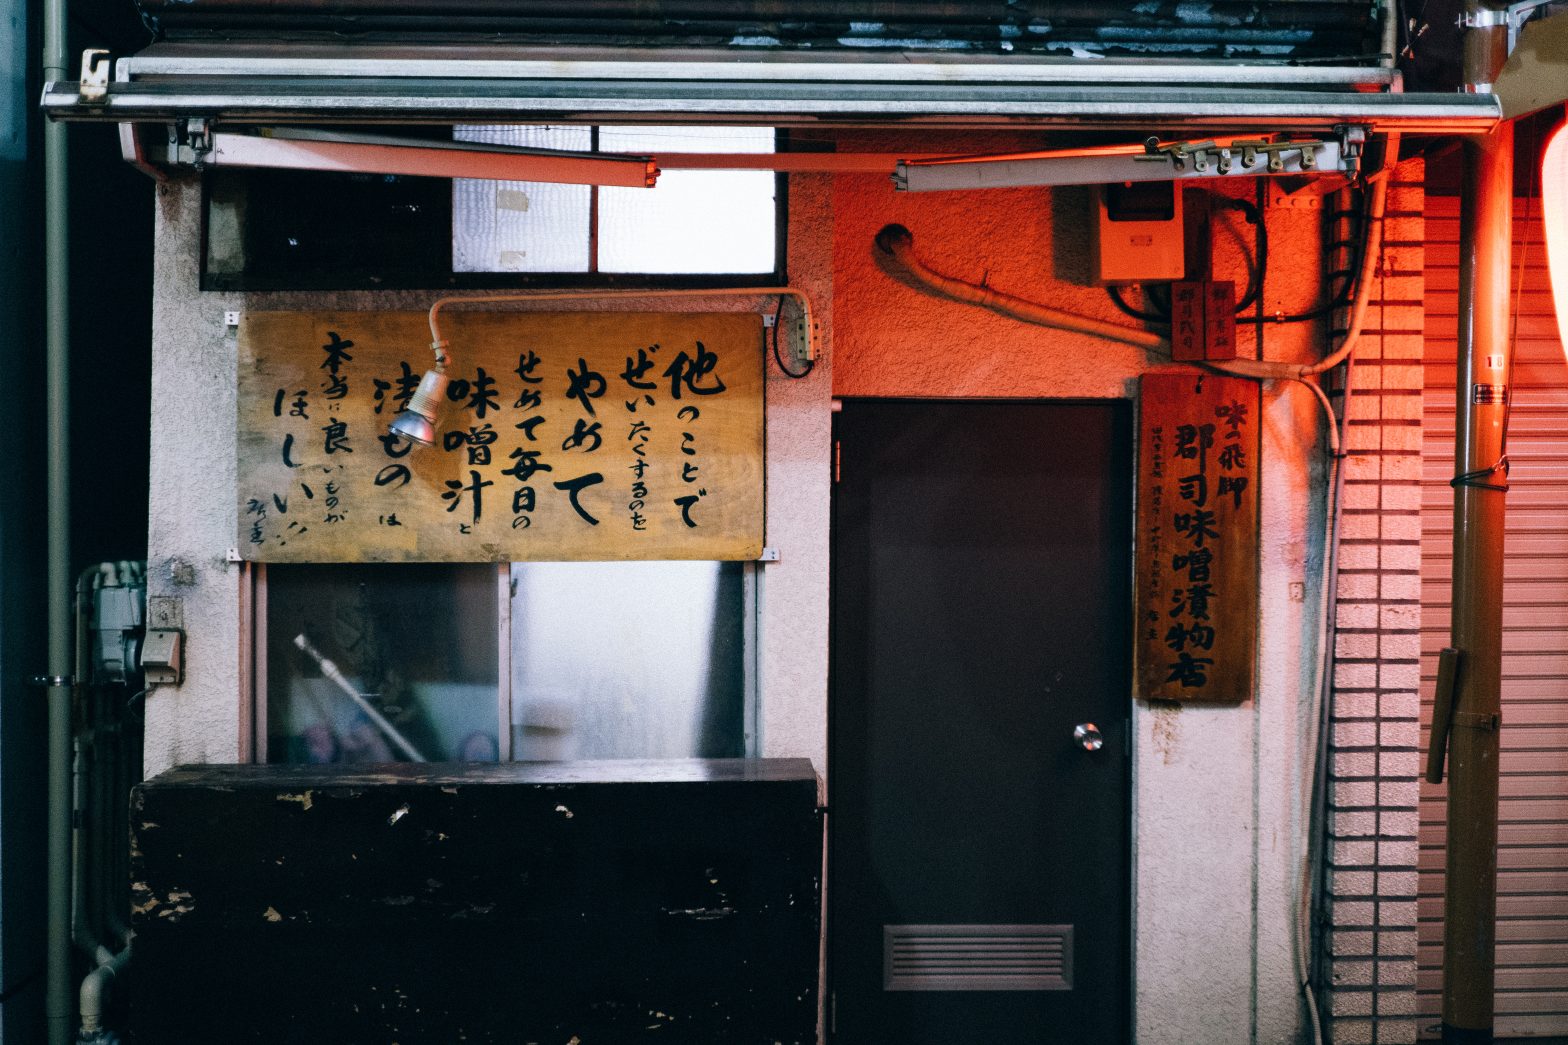 他のことで
ぜいたくするのを
やめて
せめて毎日の
味噌汁と
漬もの は
本当に良いものが
ほしい
味の飛脚
郡司味噌漬物店